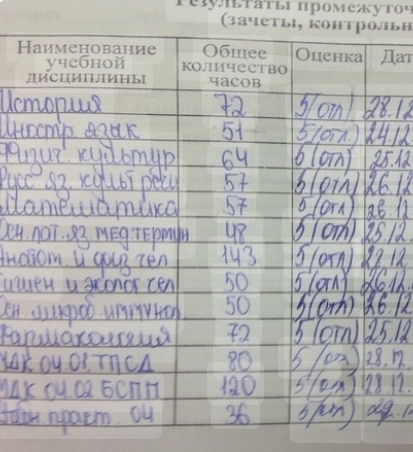 Результаты промежуточ
(зачеты, контрольн
Наименование учебной дисциплины Общее количество часов Оценка Дат
История 72 5(отл) 28.12
Иностр. язык 51 5(отл.) 24.12
Физич. культур 64 5(отл) 25.12
Русс яз. культ речи 57 5(отл) 26.12
Математика 57 5(отл) 26.12
Осн. лат. яз. мед терми 48 5(отл) 25.12
Анатом. и физ чел 143 5(отл) 27.12
Гигиен и эколог чел 50 5(отл) 26.12
Осн. микроб. иммунол 50 5(отл) 26.12
Фармакология 72 5(отл) 25.12
МДК 04.01. ТПСД 80 5(отл) 28.12
МДК 04.02 БСПП 120 5(отл) 28.12
практ. 04 36 5(отл) 29.12